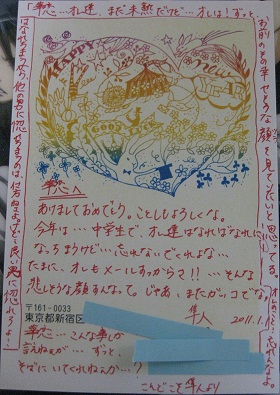 …オレ達、まだ未熟だけど…オレは!ずっと、
お前のその幸せそうな顔を見てたいと思ってる。
HAPPY
NEW
YEAR
GOOD
恋へ
あけましておめでとう。ことしもよろしくな。
今年は…中学生で、オレ達はなればなれに
なっちまうけど…忘れないでくれよな…
たまに、オレもメールすっから?!!…そんな
悲しそうな顔すんなって。じゃあ、またガッコでな!
隼人
2011.1.
〒161-0033
東京都新宿区
恋…こんな事しか
言えねぇが…ずっと
そばにいてくれねぇか…?
こんどこそ隼人より
他の男に惚れちまうのは仕方ねぇけど…良い男に惚れろよ…